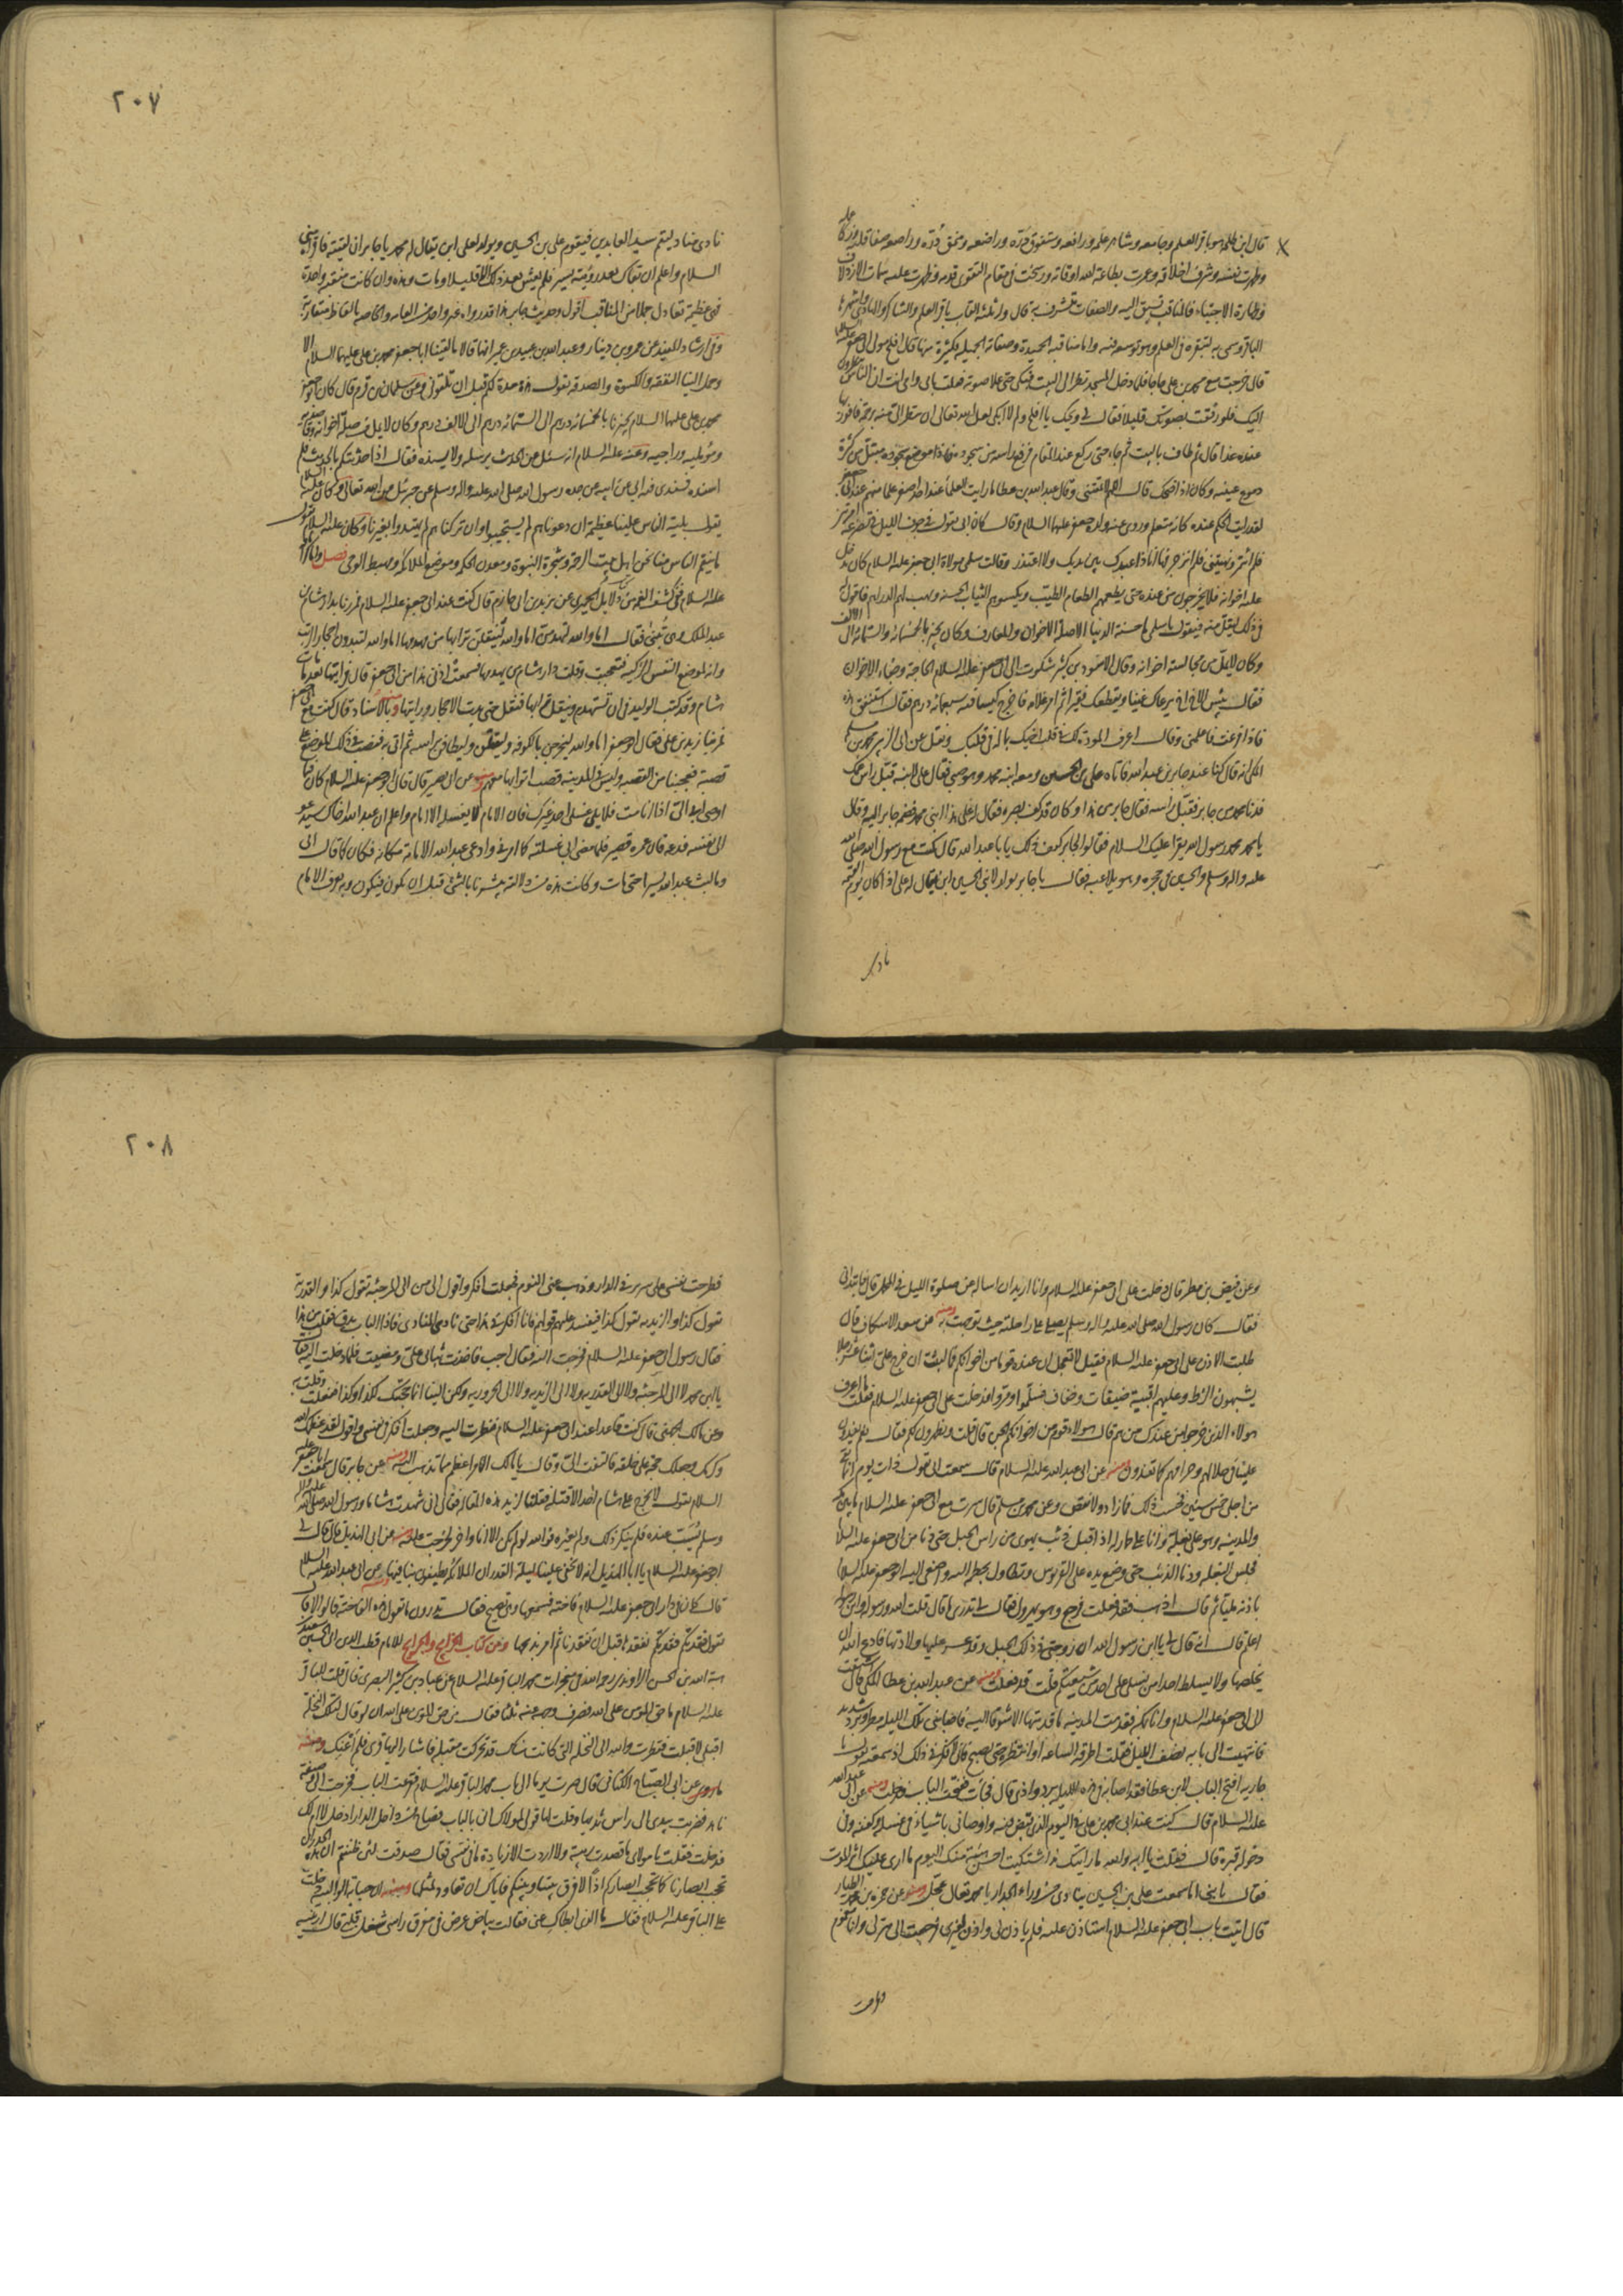 قال ابن طلحة هو باقر العلم وجامعه وشاهر علمه ورافعه ومتفوق درّه وراضعه ومنمق دُرّه وراصعه صفا قلبه وزكا عمله
وطهرت نفسه وشرفت اخلاقه وعمرت بطاعة الله اوقاته ورسخت في مقام التقوى قدمه وظهرت عليه سمات الازدلاف
وطهارة الاجتباء فالمناقب تسبق اليه والصفات تشرف به قال وله ثلثة القاب باقر العلم والشاكر والهادي واشهرها
الباقر وسمي به لتبقره في العلم وهو توسعه فيه واما مناقبه الحميدة وصفاته الجميلة فكثيرة منها قال افلح مولى ابي جعفر عليه السلام
قال خرجت مع محمد بن علي حاجا فلما دخل المسجد نظر الى البيت فبكى حتى علا صوته فقلت بابي وامي انت ان الناس ينظرون
اليك فلو رفقت بصوتك قليلا فقال لي ويحك يا افلح ولم لا ابكي لعل الله تعالى ان ينظر الي منه برحمة فافوز بها
عنده غدا قال ثم طاف بالبيت ثم جاء حتى ركع عند المقام فرفع راسه من سجوده فاذا موضع سجوده مبتل من كثرة
دموع عينيه وكان اذا ضحك قال اللهم لا تمقتني وقال عبد الله بن عطا ما رايت العلماء عند احد اصغر علما منهم عند ابي جعفر
لقد رايت الحكم عنده كانه متعلم وروى عنه ولده جعفر عليهما السلام وقال كان ابي يقول في جوف الليل في تضرعه امرتني
فلم ائتمر ونهيتني فلم انزجر فها انا ذا عبدك بين يديك ولا اعتذر وقالت سلمى مولاة ابي جعفر عليه السلام كان يدخل
عليه اخوانه فلا يخرجون من عنده حتى يطعمهم الطعام الطيب ويكسوهم الثياب الحسنة ويهب لهم الدراهم فاقول له
في ذلك ليقل منه فيقول يا سلمى ما حسنة الدنيا الا صلة الاخوان والمعارف وكان يجيز بالخمسمائة والستمائة الى الالف
وكان لا يمل من مجالسة اخوانه وقال الاسود بن كثير شكوت الى ابي جعفر عليه السلام الحاجة وجفاء الاخوان
فقال بئس الاخ اخ يرعاك غنيا ويقطعك فقيرا ثم امر غلامه فاخرج كيسا فيه سبعمائة درهم فقال استنفق هذه
فاذا فرغت فاعلمني وقال اعرف المودة لك في قلب اخيك بما له في قلبك ونقل عن ابي الزبير محمد بن مسلم
المكي انه قال كنا عند جابر بن عبد الله فاتاه علي بن الحسين ومعه ابنه محمد وهو صبي فقال علي لابنه قبل راس عمك
فدنا محمد من جابر فقبل راسه فقال جابر من هذا وكان قد كف بصره فقال له علي هذا ابني محمد فضمه جابر اليه وقال
يا محمد محمد رسول الله يقرأ عليك السلام فقالوا لجابر كيف ذلك يا با عبد الله قال كنت مع رسول الله صلى الله
عليه واله وسلم والحسين في حجره وهو يلاعبه فقال يا جابر يولد لابني الحسين ابن يقال له علي اذا كان يوم القيمة
نادى
٢٠٧
نادى مناد ليقم سيد العابدين فيقوم علي بن الحسين ويولد لعلي ابن يقال له محمد يا جابر ان لقيته فاقرأه مني
السلام واعلم ان بقاك بعد رؤيته يسير فلم يعش بعد ذلك الا قليلا ومات وهذه وان كانت منقبة واحدة
فهي عظيمة تعادل جملا من المناقب اقول وحديث جابر هذا قد رواه غير واحد من العامه والخاصه بالفاظ متقاربة
وفي ارشاد المفيد عن عمرو بن دينار وعبد الله بن عبيد بن عمير انهما قالا ما لقينا ابا جعفر محمد بن علي عليهما السلام الا
وحمل الينا النفقة والكسوة والصدقة يقول هذه معدة لكم قبل ان تلقوني وعن سليمان بن قرم قال كان ابو جعفر
محمد بن علي عليهما السلام يجيزنا بالخمسمائة درهم الى الستمائة درهم الى الالف درهم وكان لا يمل من صلة اخوانه وقاصديه
ومؤمليه وراجيه وعنه عليه السلام انه سئل عن الحديث يرسله ولا يسنده فقال اذا حدثتكم بالحديث فلم
اسنده فسندي فيه ابي عن ابيه عن جده رسول الله صلى الله عليه واله وسلم عن جبرئيل عن الله تعالى وكان عليه السلام
يقول بلية الناس علينا عظيمة ان دعوناهم لم يستجيبوا وان تركناهم لم يهتدوا بغيرنا وكان عليه السلام يقول
ما ينقم الناس منا نحن اهل بيت الرحمة وشجرة النبوة ومعدن الحكمة وموضع الملائكة ومهبط الوحي فصل
عليه السلام ففي كشف الغمة من دلايل الحميري عن يزيد بن ابي حازم قال كنت عند ابي جعفر عليه السلام فمررنا بدار هشام بن
عبد الملك وهي تبنى فقال اما والله لتهدمن اما والله لينقلن ترابها من مهدمها اما والله لتبدون احجار الزيت
وانه لموضع النفس الزكية فتعجبت وقلت دار هشام من يهدمها فسمعت اذني هذا من ابي جعفر قال فرايتها بعد ما مات
هشام وقد كتب الوليد في ان تستهدم وينقل ترابها فنقل حتى بدت الاحجار ورايتها وبالاسناد قال كنت مع ابي جعفر
فمر بنا زيد بن علي فقال ابو جعفر اما والله ليخرجن بالكوفة وليقتلن وليطافن براسه ثم اتى به فنصب في ذلك الموضع على
قصبة فعجبنا من القصبة وليس في المدينة قصب اتوا بها معهم ومنه عن ابي بصير قال قال ابو جعفر عليه السلام كان فيما
اوصى ابي الي اذا انا مت فلا يلي غسلي احد غيرك فان الامام لا يغسله الا امام واعلم ان عبد الله اخاك سيدعو
الى نفسه فدعه فان عمره قصير فلما مضى ابي غسلته كما امرني وادعى عبد الله الامامة مكانه فكان كما قال ابي
وما لبث عبد الله يسيرا حتى مات وكانت هذه من دلالته يبشرنا بالشيء قبل ان يكون فيكون وبه يعرف الامام
وعن فيض بن مطر قال دخلت على ابي جعفر عليه السلام وانا اريد ان اساله عن صلوة الليل في المحمل قال فابتداني
فقال كان رسول الله صلى الله عليه واله وسلم يصلي على راحلته حيث توجهت به ومنه عن سعد الاسكاف قال
طلبت الاذن على ابي جعفر عليه السلام فقيل لا تعجل ان عنده قوما من اخوانكم فما لبثت ان خرج علي اثنا عشر رجلا
يشبهون الزط وعليهم اقبية ضيقات وخفاف فسلموا ومروا فدخلت على ابي جعفر عليه السلام فقلت ما اعرف
هولاء الذين خرجوا من عندك من هم قال هولاء قوم من اخوانكم الجن قال قلت ويظهرون لكم فقال نعم يغدون
علينا في حلالهم وحرامهم كما تغدون ومنه عن ابي عبد الله عليه السلام قال سمعت ابي يقول ذات يوم انما بقي
من اجلي خمس سنين فحسبت ذلك فما زاد ولا نقص وعن محمد بن مسلم قال سرت مع ابي جعفر عليه السلام ما بين مكة
والمدينة وهو على بغلة وانا على حمار له اذ اقبل ذئب يهوي من راس الجبل حتى دنا من ابي جعفر عليه السلام
فحبس البغلة ودنا الذئب حتى وضع يده على القربوس وتطاول بخطمه اليه واصغى اليه ابو جعفر عليه السلام
باذنه مليا ثم قال اذهب فقد فعلت فرجع وهو يهرول فقال لي تدري ما قال قلت الله ورسوله وابن رسوله
اعلم قال انه قال لي يا ابن رسول الله ان زوجتي في ذلك الجبل وقد عسر عليها ولادتها فادع الله ان
يخلصها ولا يسلط احدا من نسلي على احد من شيعتكم قلت قد فعلت ومنه عن عبد الله بن عطا المكي قال اشتقت
الى ابي جعفر عليه السلام وانا بمكة فقدمت المدينة ما قدمتها الا شوقا اليه فاصابني تلك الليلة مطر وبرد شديد
فانتهيت الى بابه نصف الليل فقلت اطرقه الساعة او انتظر حتى يصبح فاني لافكر في ذلك اذ سمعته يقول يا
جارية افتحي الباب لابن عطا فقد اصابه في هذه الليلة برد واذى قال فجائت ففتحت الباب فدخلت ومنه عن ابي عبد الله
عليه السلام قال كنت عند ابي محمد بن علي في اليوم الذي قبض فيه واوصاني باشياء في غسله وكفنه وفي
دخوله قبره قال فقلت يا ابه والله ما رايتك منذ اشتكيت احسن هيئة منك اليوم ما ارى عليك اثر الموت
فقال يا بني اما سمعت علي بن الحسين ينادي من وراء الجدار يا محمد تعال عجل ومنه عن حمزة بن محمد الطيار
قال اتيت باب ابي جعفر عليه السلام استاذن عليه فلم ياذن لي واذن لغيري فرجعت الى منزلي وانا مغموم
فطرحت
٢٠٨
فطرحت نفسي على سرير في الدار وذهب عني النوم فجعلت افكر واقول الى من الى المرجئة تقول كذا والقدرية
تقول كذا والزيدية تقول كذا فيفسد عليهم قولهم فانا افكر في هذا حتى نادى المنادي فاذا الباب يدق فقلت من هذا
فقال رسول ابي جعفر عليه السلام فخرجت اليه فقال اجب فاخذت ثيابي علي ومضيت فلما دخلت اليه قال
يا ابن محمد لا الى المرجئة ولا الى القدرية ولا الى الزيدية ولا الى الحرورية ولكن الينا انما حجبتك لكذا وكذا فقبلت وقلت به
وعن مالك الجهني قال كنت قاعدا عند ابي جعفر عليه السلام فنظرت اليه وجعلت افكر في نفسي واقول لقد عظمك الله
وكرمك وجعلك حجة على خلقه فالتفت الي وقال يا مالك الامر اعظم مما تذهب اليه ومنه عن جابر قال سمعت ابا جعفر عليه
السلام يقول لا يخرج على هشام احد الا قتله فقلنا لزيد هذه المقالة فقال اني شهدت هشاما ورسول الله صلى الله عليه واله
وسلم يسب عنده فلم ينكر ذلك ولم يغيره فوالله لو لم يكن الا انا واخر لخرجت عليه ومنه عن ابي الهذيل قال قال لي
ابو جعفر عليه السلام يا ابا الهذيل انه لا تخفى علينا ليلة القدر ان الملائكة يطيفون بنا فيها ومنه عن ابي عبد الله عليه السلام
قال كان في دار ابي جعفر عليه السلام فاختة فسمعها وهي تصيح فقال تدرون ما تقول هذه الفاختة قالوا لا قال
تقول فقدتكم فقدتكم نفقدها قبل ان تفقدنا ثم امر بذبحها ومن كتاب الخرايج والجرايح للامام قطب الدين ابي الحسين سعيد بن
هبة الله بن الحسن الراوندي رحمه الله في معجزات محمد الباقر عليه السلام عن عباد بن كثير البصري قال قلت للباقر
عليه السلام ما حق المؤمن على الله فصرف وجهه عنه ثلثا فقال من حق المؤمن على الله ان لو قال لتلك النخلة
اقبلي لاقبلت فنظرت والله الى النخلة التي كانت هناك قد تحركت مقبلة فاشار اليها قري فلم اعنك ومنه
ما روي عن ابي الصباح الكناني قال صرت يوما الى باب محمد الباقر عليه السلام فقرعت الباب فخرجت الي وصيفة
ناهد فضربت بيدي الى راس ثديها وقلت لها قولي لمولاك اني بالباب فصاح من داخل الدار ادخل لا ام لك
فدخلت فقلت يا مولاي ما قصدت ريبة ولا اردت الا زيادة ما في نفسي فقال صدقت لئن ظننتم ان هذه الجدران
تحجب ابصارنا كما تحجب ابصاركم اذا لا فرق بيننا وبينكم فاياك ان تعاود لمثلها ومنه ان حبابة الوالبية دخلت
على الباقر عليه السلام فقال ما الذي ابطاك عني فقالت بياض عرض في مفرق راسي شغل قلبي قال ارينيه